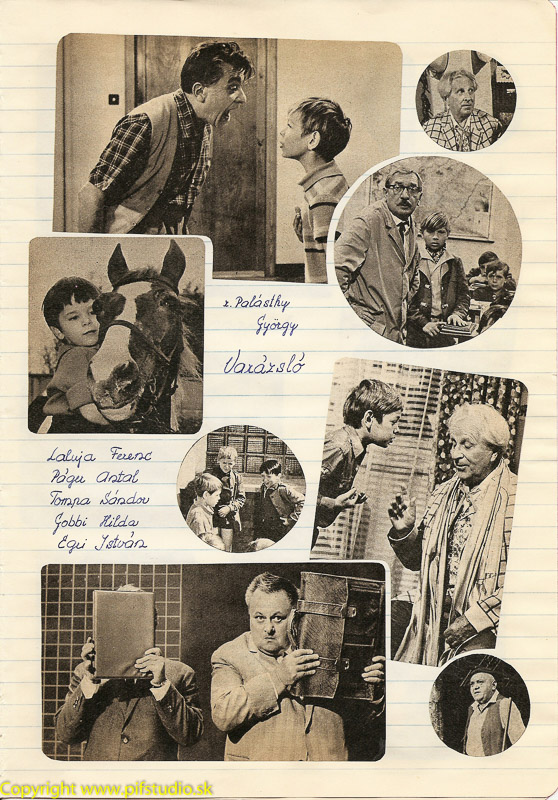 r. Palásthy
György
Varázsló
Laluja Ferenc
Págu Antal
Tompa Sándor
Gobbi Hilda
Egri István
Copyright www.pifstudio.sk